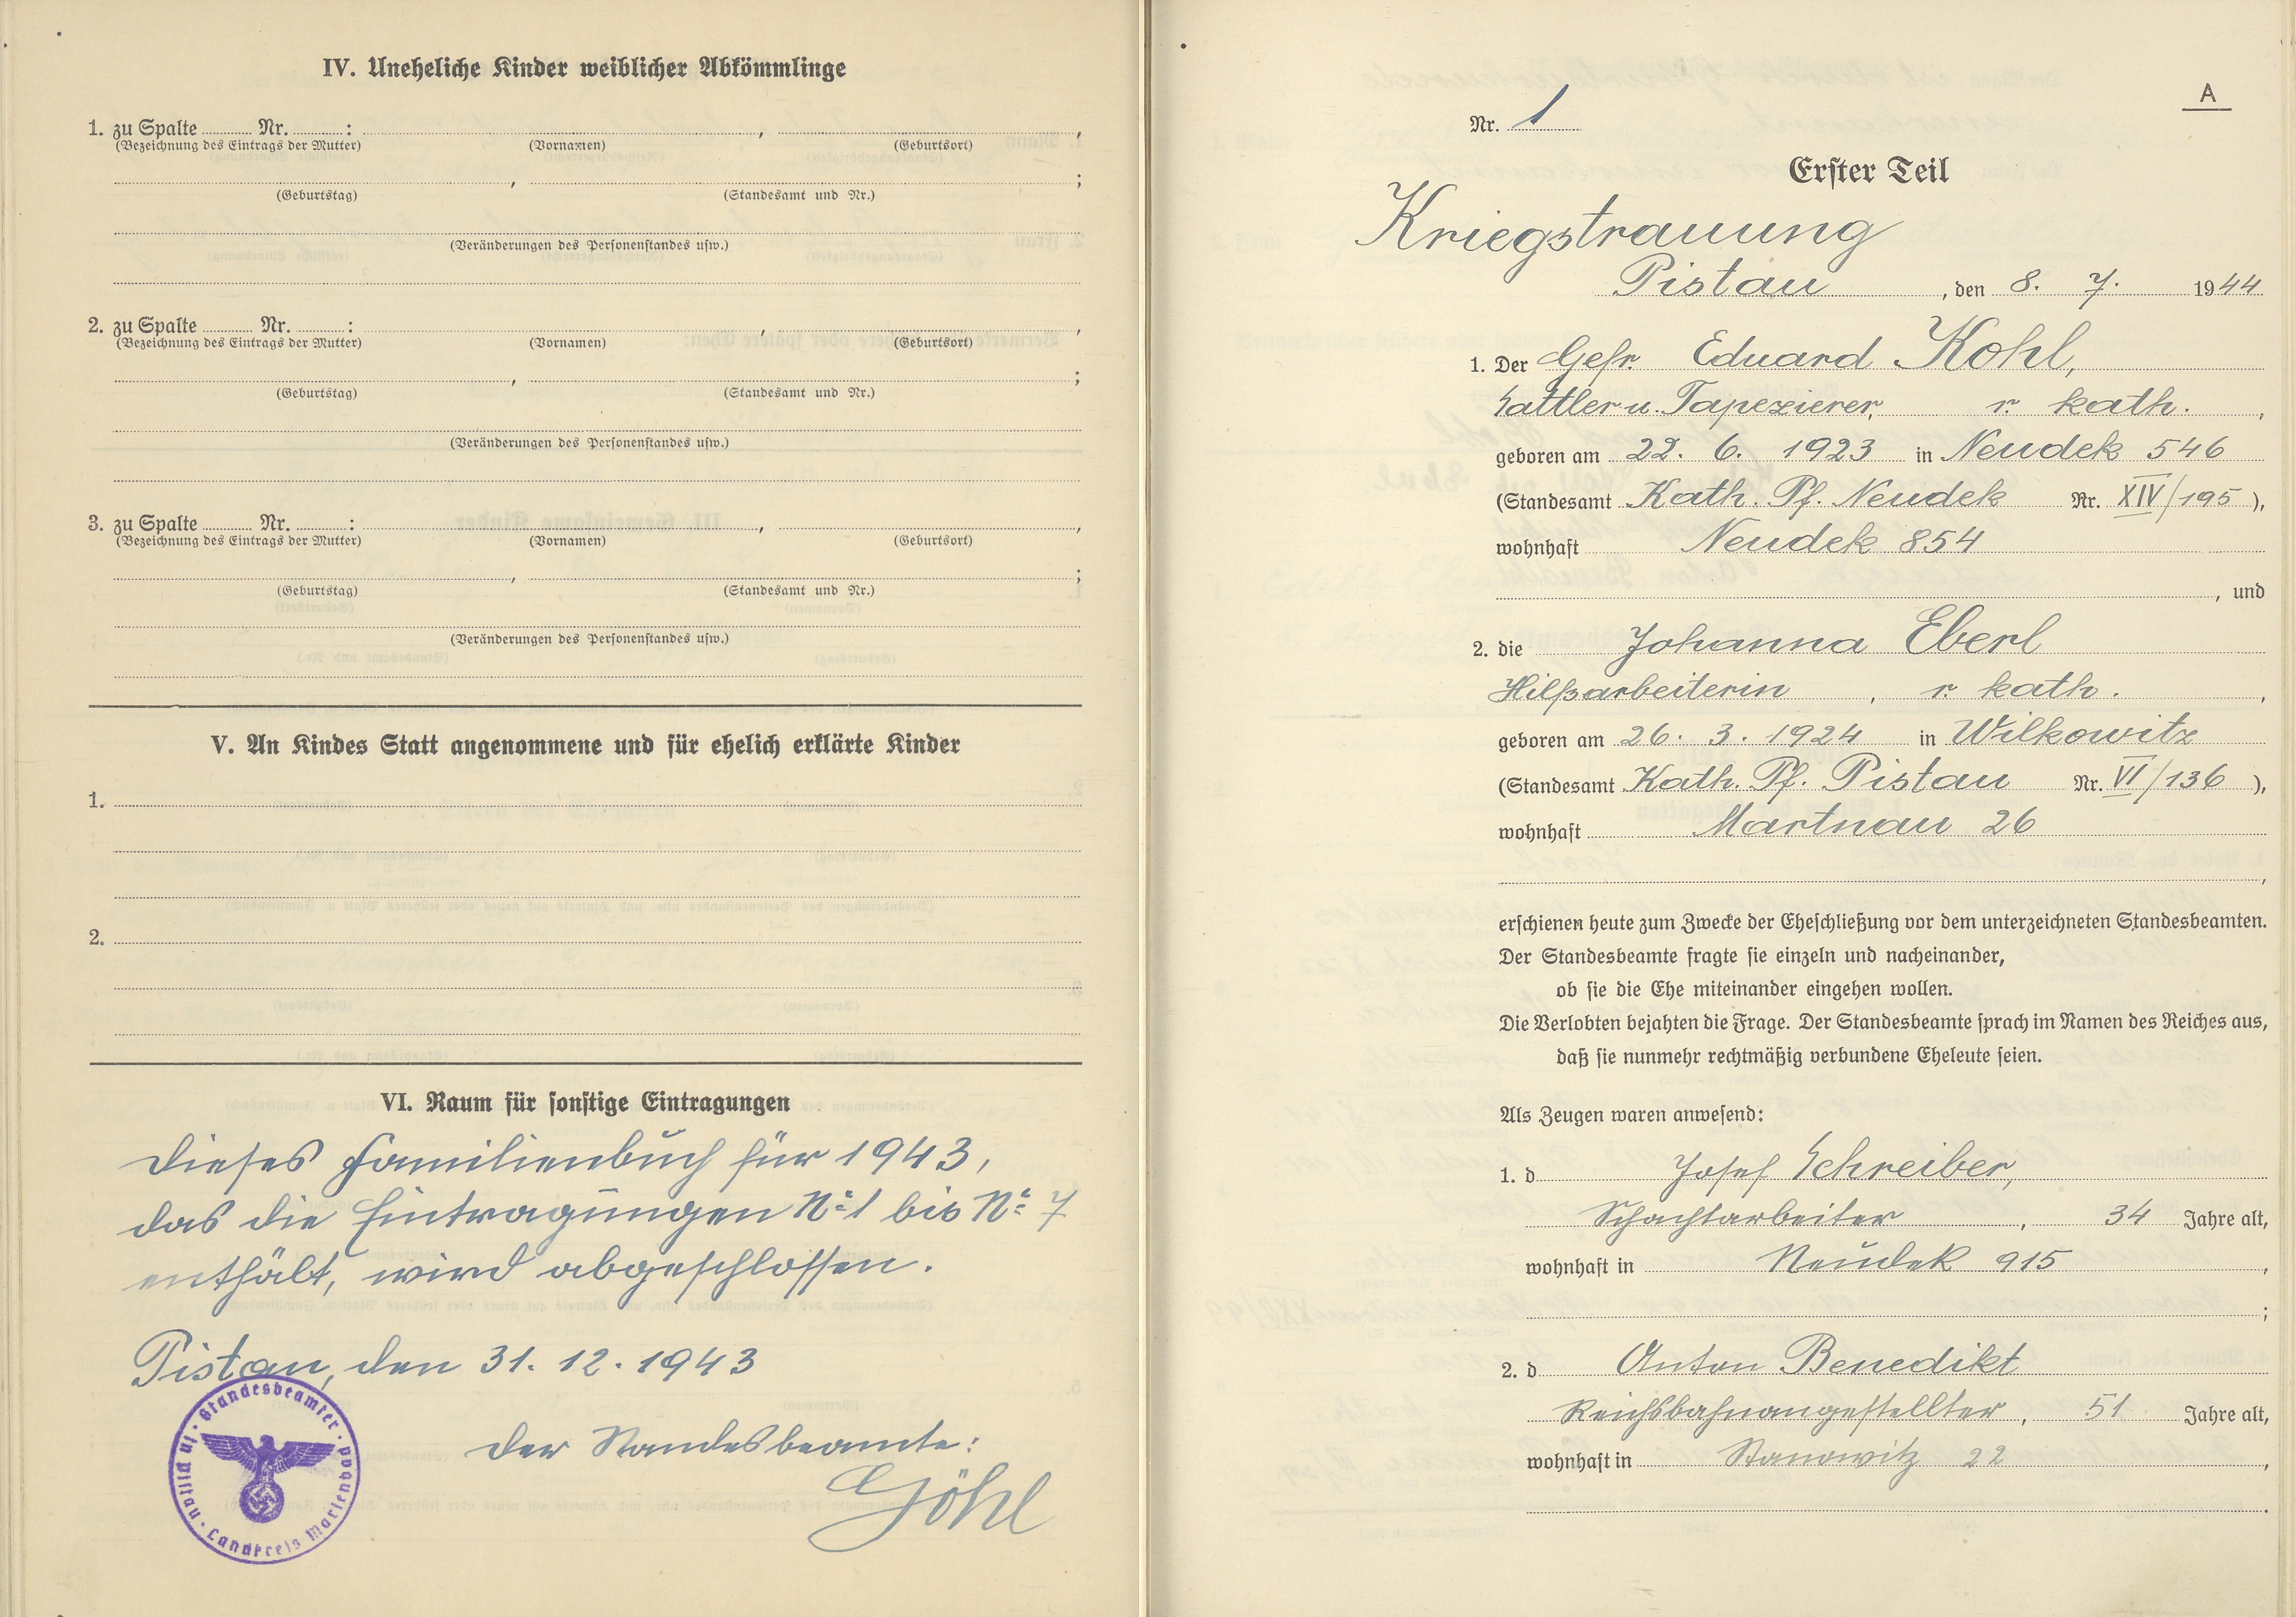 IV. Uneheliche Kinder weiblicher Abkömmlinge
1. zu Spalte ........ Nr. ........ : ........ , ........ ,
(Bezeichnung des Eintrags der Mutter) (Vornamen) (Geburtsort)
........ , ........ ;
(Geburtstag) (Standesamt und Nr.)
(Veränderungen des Personenstandes usw.)
2. zu Spalte ........ Nr. ........ : ........ , ........ ,
(Bezeichnung des Eintrags der Mutter) (Vornamen) (Geburtsort)
........ , ........ ;
(Geburtstag) (Standesamt und Nr.)
(Veränderungen des Personenstandes usw.)
3. zu Spalte ........ Nr. ........ : ........ , ........ ,
(Bezeichnung des Eintrags der Mutter) (Vornamen) (Geburtsort)
........ , ........ ;
(Geburtstag) (Standesamt und Nr.)
(Veränderungen des Personenstandes usw.)
V. An Kindes Statt angenommene und für ehelich erklärte Kinder
1.
2.
VI. Raum für sonstige Eintragungen
Dieses Familienbuch für 1943,
das die Eintragungen No 1 bis No 7
enthält, wird abgeschlossen.
Pistau, den 31. 12. 1943
Der Standesbeamte:
Göhl
Standesbeamter in Pistau · Landkreis Marienbad
A
Nr. 1
Erster Teil
Kriegstrauung
Pistau, den 8. 7. 1944
1. Der Gefr. Eduard Kohl,
Sattler u. Tapezierer, r. kath. ,
geboren am 22. 6. 1923 in Neudek 546
(Standesamt Kath. Pf. Neudek Nr. XIV/195 ),
wohnhaft Neudek 854
, und
2. die Johanna Eberl
Hilfsarbeiterin , r. kath. ,
geboren am 26. 3. 1924 in Wilkowitz
(Standesamt Kath. Pf. Pistau Nr. VI/136 ),
wohnhaft Martnau 26
,
erschienen heute zum Zwecke der Eheschließung vor dem unterzeichneten Standesbeamten.
Der Standesbeamte fragte sie einzeln und nacheinander,
ob sie die Ehe miteinander eingehen wollen.
Die Verlobten bejahten die Frage. Der Standesbeamte sprach im Namen des Reiches aus,
daß sie nunmehr rechtmäßig verbundene Eheleute seien.
Als Zeugen waren anwesend:
1. d Josef Schreiber,
Schachtarbeiter , 34 Jahre alt,
wohnhaft in Neudek 915 ,
;
2. d Anton Benedikt
Reichsbahnangestellter , 51 Jahre alt,
wohnhaft in Stanowitz 22 ,
.